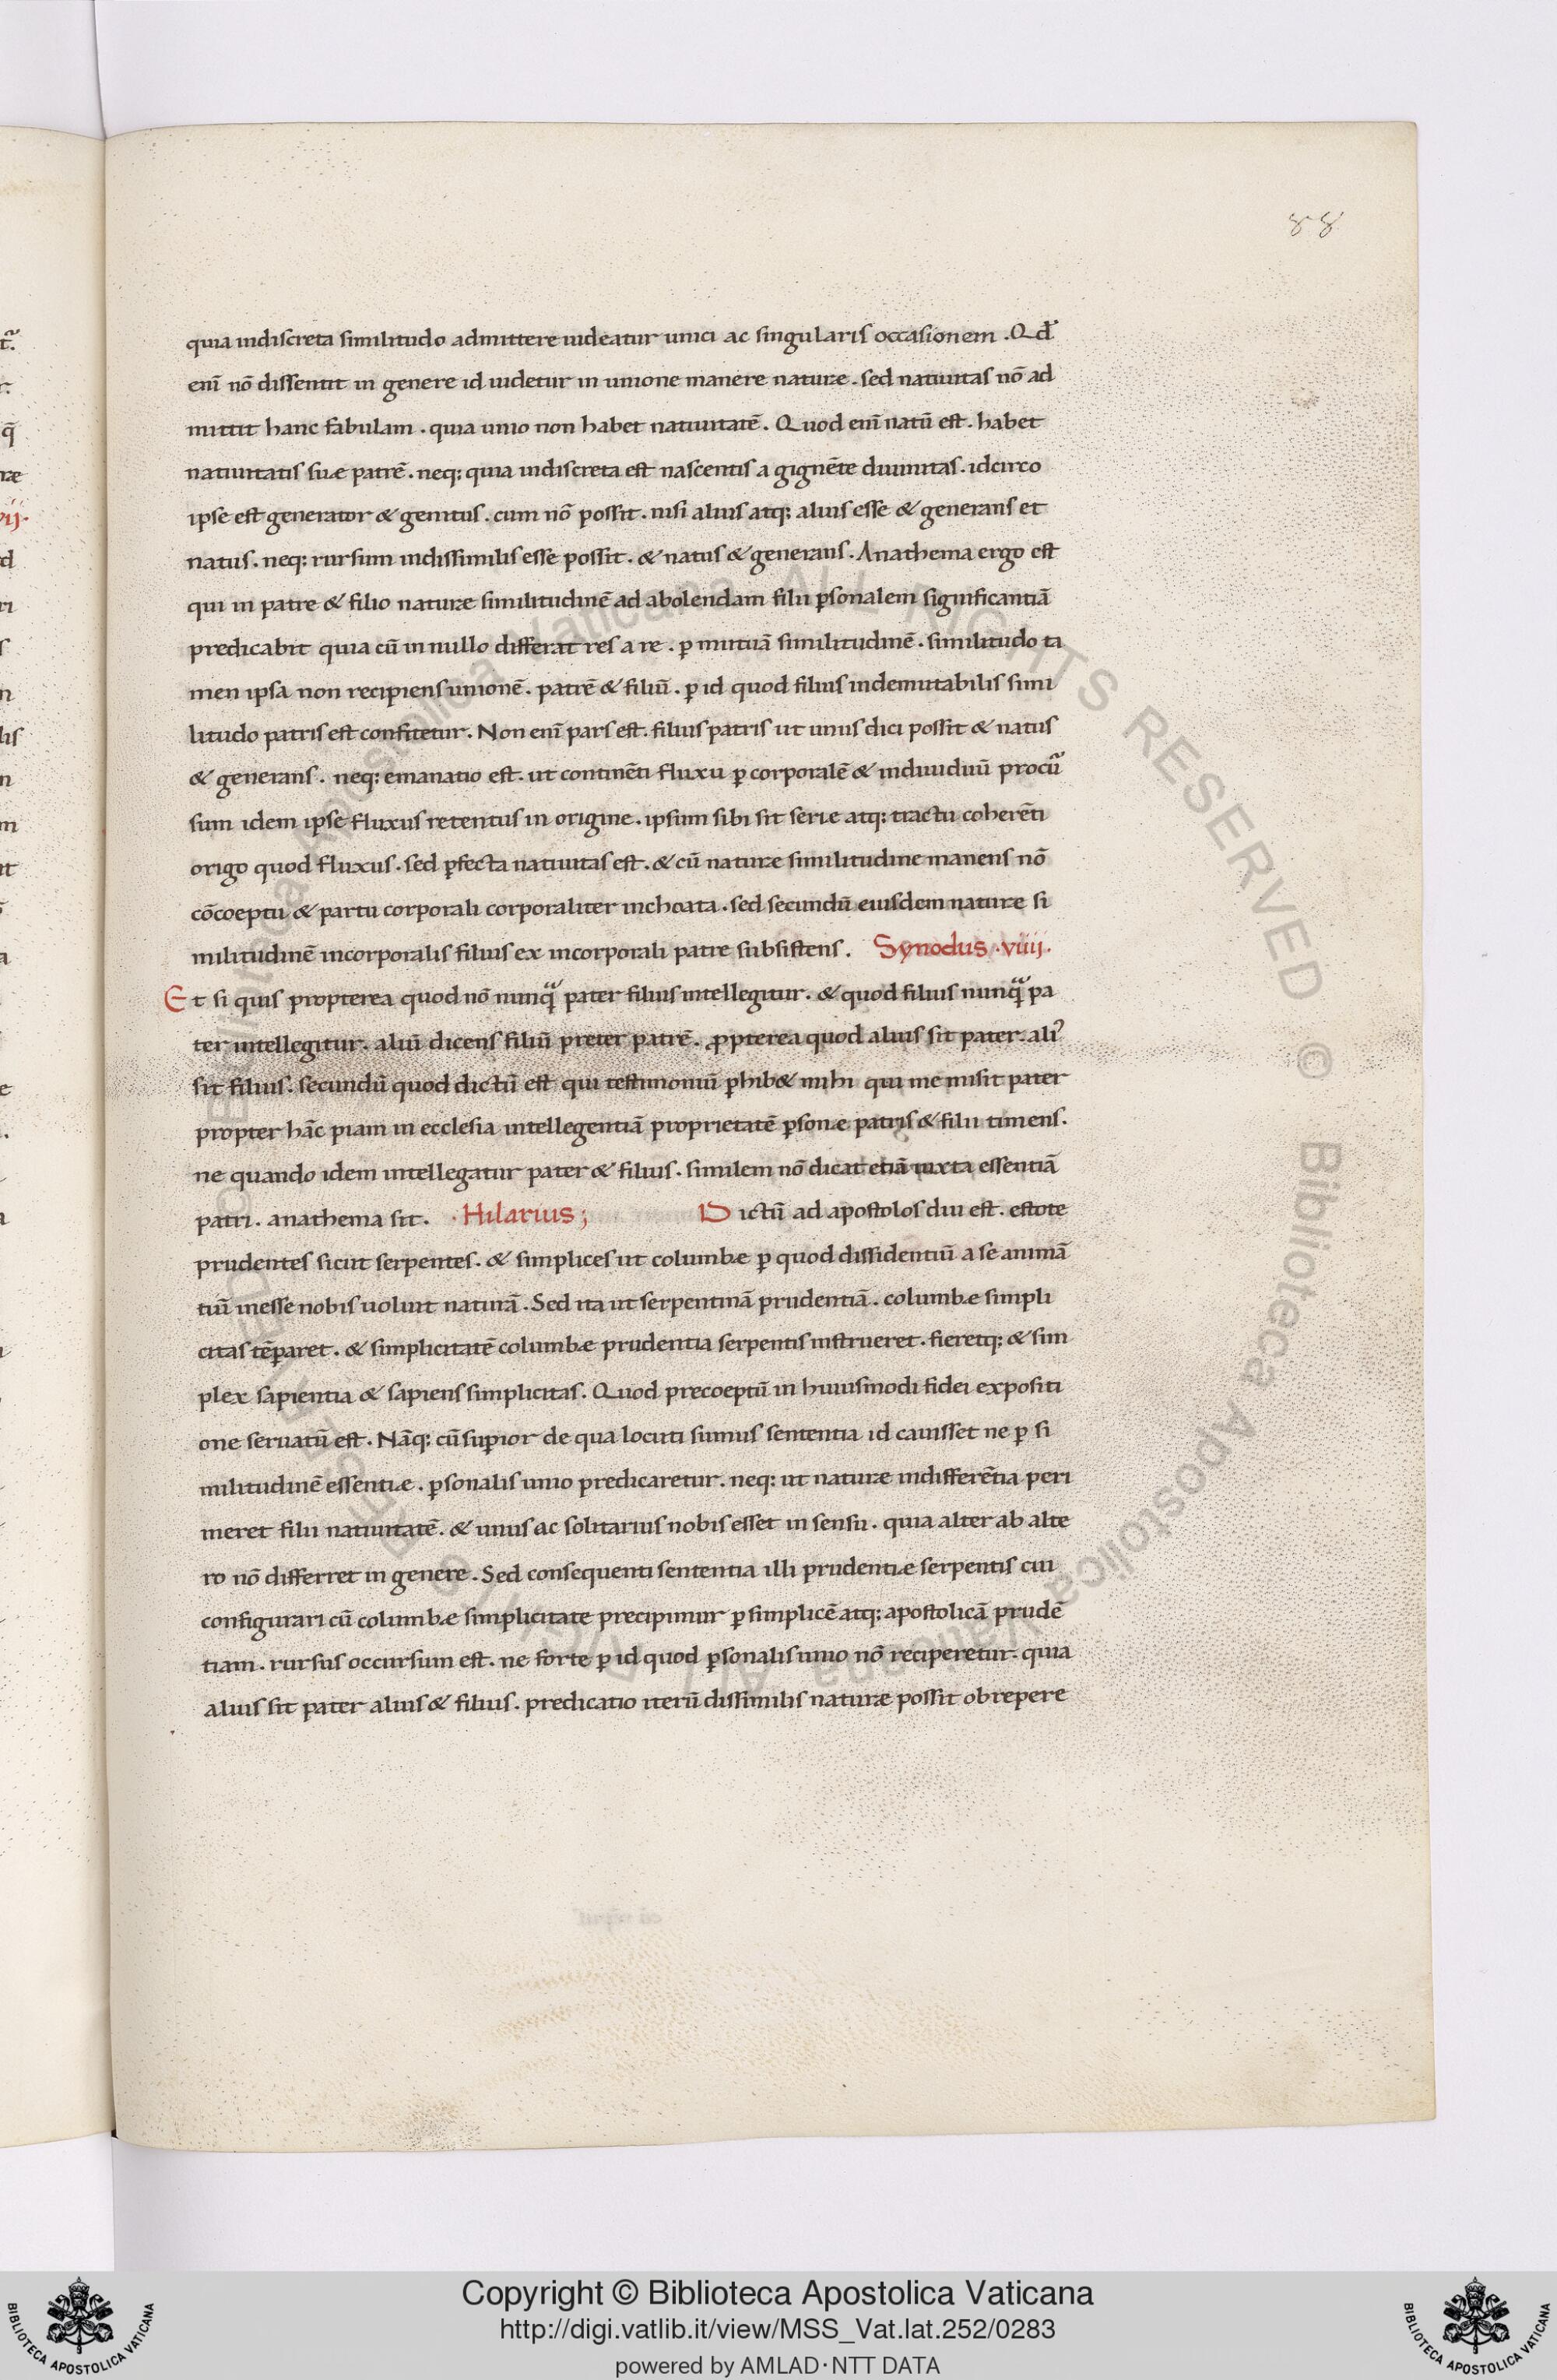 88
quia indiscreta similitudo admittere uideatur unici ac singularis occasionem . Qd̄
eni͞ nō dissentit in genere id uidetur in unione manere naturæ . sed natiuitas nō ad
mittit hanc fabulam . quia unio non habet natiuitatē . Quod eni͞ natū est . habet
natiuitatis suæ patrē . neq; quia indiscreta est nascentis a gignēte diuinitas . idcirco
ipse est generator & genitus . cum nō possit . nisi alius atq; alius esse & generans et
natus . neq; rursum indissimilis esse possit . & natus & generans . Anathema ergo est
qui in patre & filio naturæ similitudinē ad abolendam filii ꝑsonalem significantiā
predicabit quia cū in nullo differat res a re . ꝑ mutuā similitudinē . similitudo ta
men ipsa non recipiens unionē . patrē & filiū . ꝑ id quod filius indemutabilis simi
litudo patris est confitetur . Non eni͞ pars est . filius patris ut unus dici possit & natus
& generans . neq; emanatio est . ut continēti fluxu ꝑ corporalē & indiuiduū procu᷑
sum idem ipse fluxus retentus in origine . ipsum sibi sit seriæ atq; tractu coherēti
origo quod fluxus . sed ꝑfecta natiuitas est . & cū naturæ similitudine manens nō
cōcoeptu & partu corporali corporaliter inchoata . sed secundū eiusdem naturæ si
militudinē incorporalis filius ex incorporali patre subsistens . Synodus . viiij .
Et si quis propterea quod nō nunqᷓ pater filius intellegitur . & quod filius nunqᷓ pa
ter intellegitur . aliū dicens filiū preter patrē . ꝓpterea quod alius sit pater . ali᾽
sit filius . secundū quod dictū est qui testimoniū ꝑhib& mihi qui me misit pater
propter hāc piam in ecclesia intellegentiā proprietatē ꝑsonæ patris & filii timens .
ne quando idem intellegatur pater & filius . similem nō dicat etiā iuxta essentiā
patri . anathema sit . . Hilarius ; Dictū ad apostolos diu est . estote
prudentes sicut serpentes . & simplices ut columbæ ꝑ quod dissidentiū a se animā
tiū inesse nobis uoluit naturā . Sed ita ut serpentinā prudentiā . columbæ simpli
citas tēꝑaret . & simplicitatē columbæ prudentia serpentis instrueret . fieretq; & sim
plex sapientia & sapiens simplicitas . Quod precoeptū in huiusmodi fidei expositi
one seruatū est . Nāq; cū suꝑior de qua locuti sumus sententia id cauisset ne ꝑ si
militudinē essentiæ . ꝑsonalis unio predicaretur . neq; ut naturæ indifferētia peri
meret filii natiuitatē . & unus ac solitarius nobis esset in sensu . quia alter ab alte
ro nō differret in genere . Sed consequenti sententia illi prudentiæ serpentis cui
configurari cū columbæ simplicitate precipimur ꝑ simplicē atq; apostolicā prudē
tiam . rursus occursum est . ne forte ꝑ id quod ꝑsonalis unio nō reciperetur . quia
alius sit pater alius & filius . predicatio iterū dissimilis naturæ possit obrepere
Copyright © Biblioteca Apostolica Vaticana
http://digi.vatlib.it/view/MSS_Vat.lat.252/0283
powered by AMLAD · NTT DATA
BIBLIOTECA APOSTOLICA VATICANA
BIBLIOTECA APOSTOLICA VATICANA